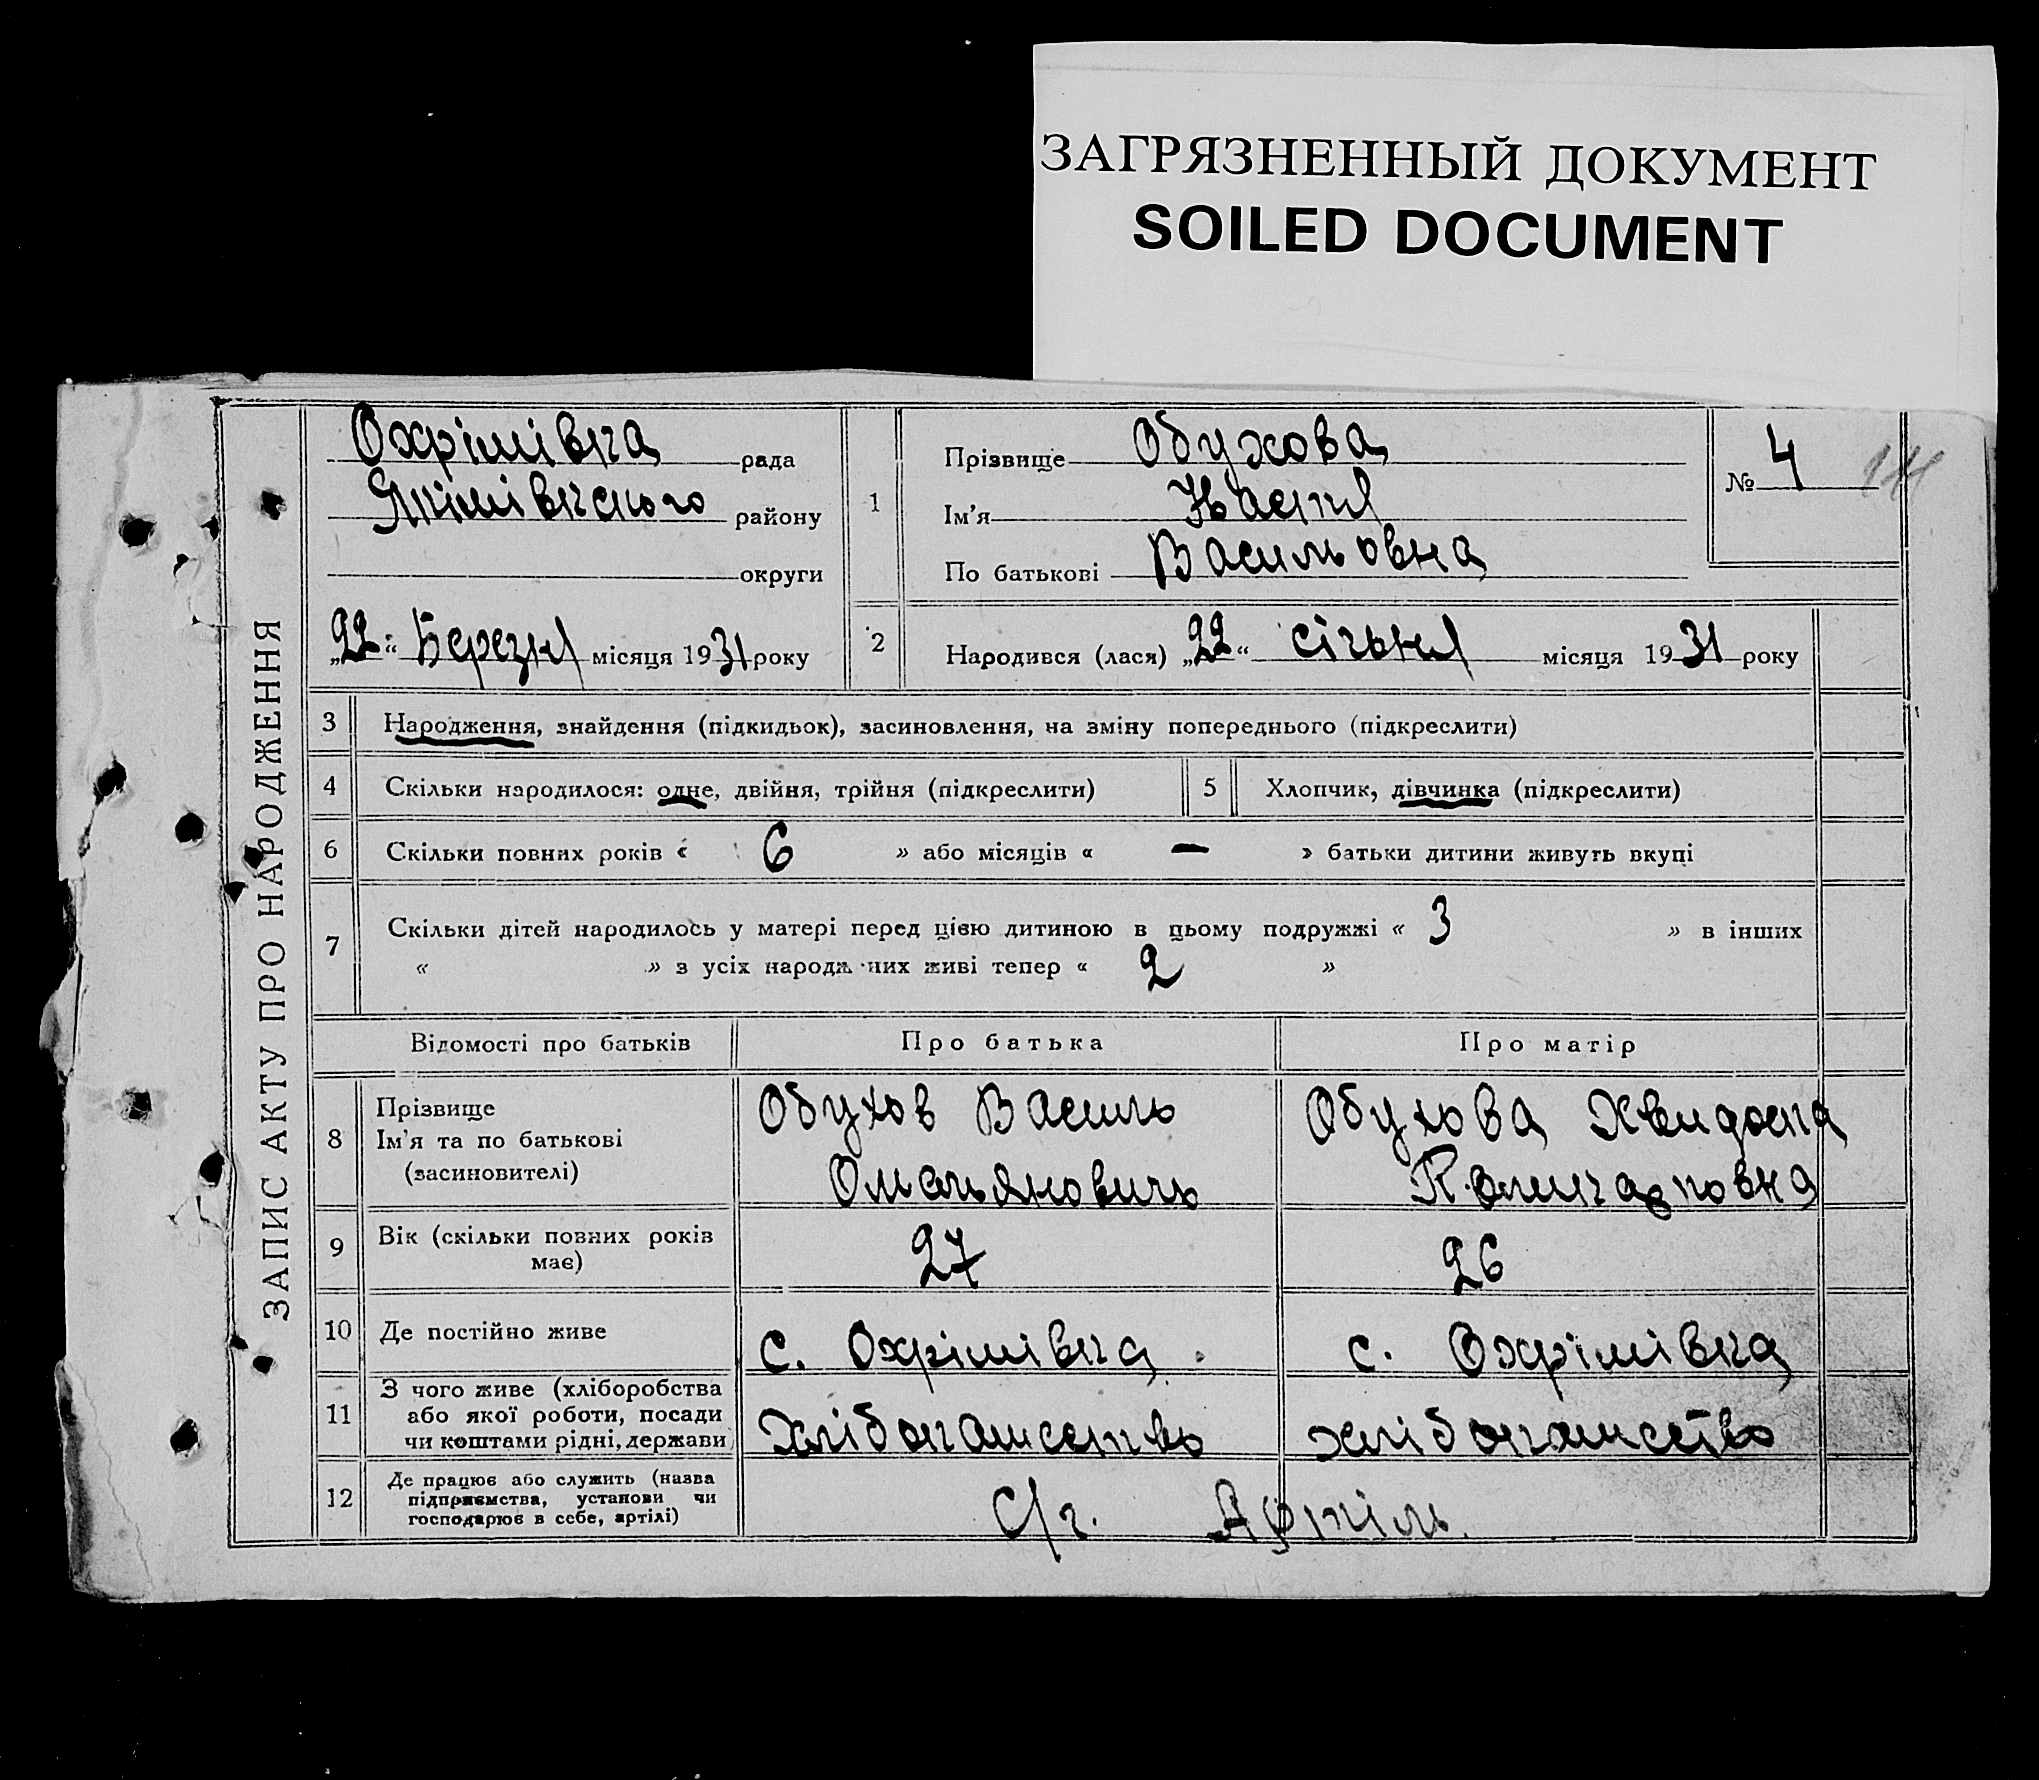 ЗАГРЯЗНЕННЫЙ ДОКУМЕНТ
SOILED DOCUMENT
ЗАПИС АКТУ ПРО НАРОДЖЕННЯ
Охрімівка рада
Якімівского району
округи
„22“ Березня місяця 1931 року
1
Прізвище Обухова
Ім'я Настя
По батькові Васильовна
№ 4
2
Народився (лася) „22“ січня місяця 1931 року
3 Народження, знайдення (підкидьок), засиновлення, на зміну попереднього (підкреслити)
4 Скільки народилося: одне, двійня, трійня (підкреслити) 5 Хлопчик, дівчинка (підкреслити)
6 Скільки повних років « 6 » або місяців « — » батьки дитини живуть вкупі
7 Скільки дітей народилось у матері перед цією дитиною в цьому подружжі « 3 » в інших
« » з усіх народж них живі тепер « 2 »
Відомості про батьків Про батька Про матір
8 Прізвище
Ім'я та по батькові
(засиновителі)
Обухов Василь
Омельяновичь
Обухова Хвидоска
Поликарповна
9 Вік (скільки повних років
має)
27 26
10 Де постійно живе с. Охрімівка с. Охрімівка
11 З чого живе (хліборобства
або якої роботи, посади
чи коштами рідні, держави)
хлібопашество хлібопашество
12 Де працює або служить (назва
підприємства, установи чи
господарює в себе, артілі)
С/г. Артіль